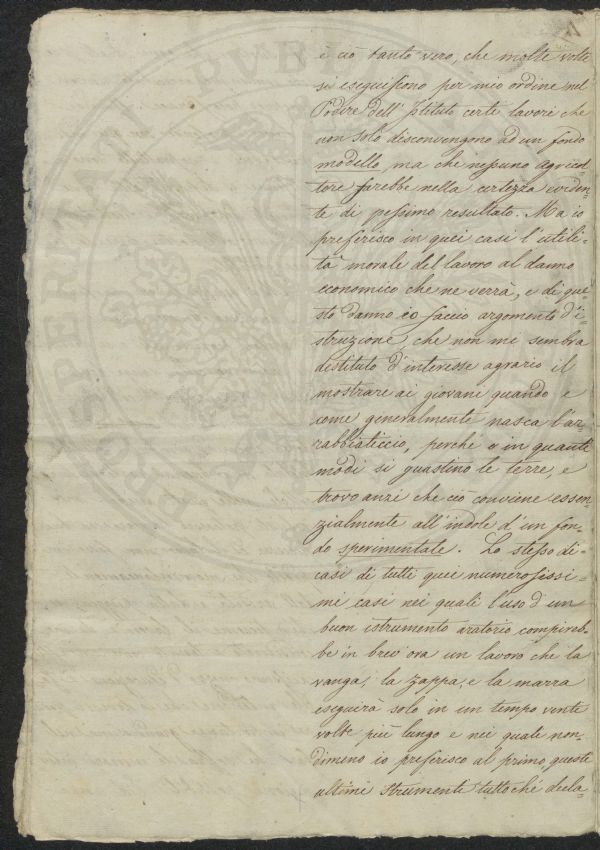 è ciò tanto vero, che molte volte
si eseguissono per mio ordine nel
Podere dell' Istituto certi lavori che
non solo disconvengono ad un fondo
modello, ma che nessuno agricol-
tore farebbe nella certezza eviden-
te di pessimo resultato. Ma io
preferisco in quei casi l'utili-
tà morale del lavoro al danno
economico che ne verrà, e di que-
sto danno io faccio argomento d'i-
struzione, che non mi sembra
destituto d'interesse agrario il
mostrare ai giovani quando e
come generalmente nasca l'ar-
rabbiaticcio, perché e in quanti
modi si guastino le terre, e
trovo anzi che ciò conviene essen-
zialmente all'indole d'un fon-
do sperimentale. Lo stesso di-
casi di tutti quei numerosissi-
mi casi nei quali l'uso d'un
buon istrumento aratorio compireb-
be in brev'ora un lavoro che la
vanga, la zappa, e la marra
eseguirà solo in un tempo vente
volte più lungo e nei quali non-
dimeno io preferisco al primo, queste
ultimi strumenti tutto ché decla-
PVBL